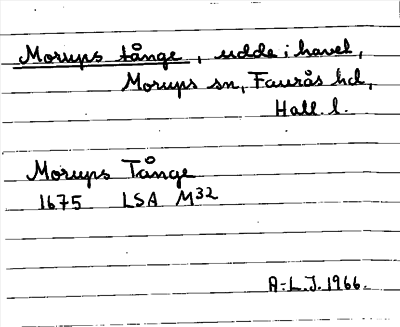 Morups tånge, udde i havet,
Morups sn, Faurås hd,
Hall. l.
Morups Tånge
1675 LSA M32
A-L.J. 1966.